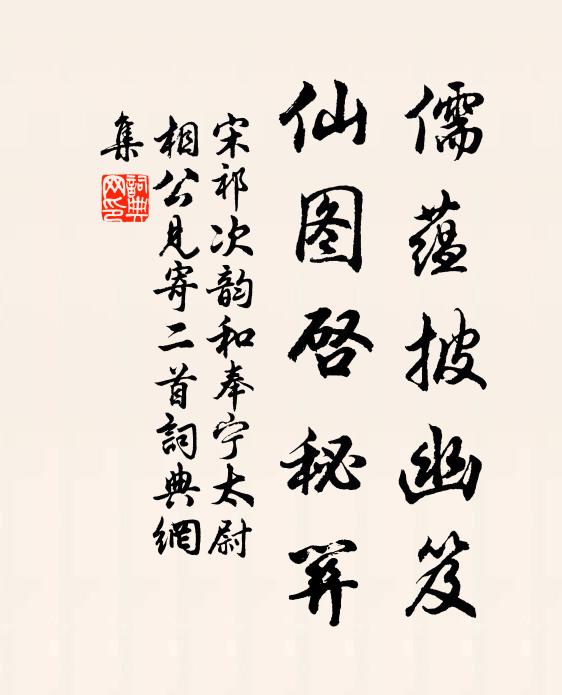 儒蕴披幽笈
仙图启秘笄
宋祁次韵和奉宁太尉
相公见寄二首詞典網
集
詞典
网印